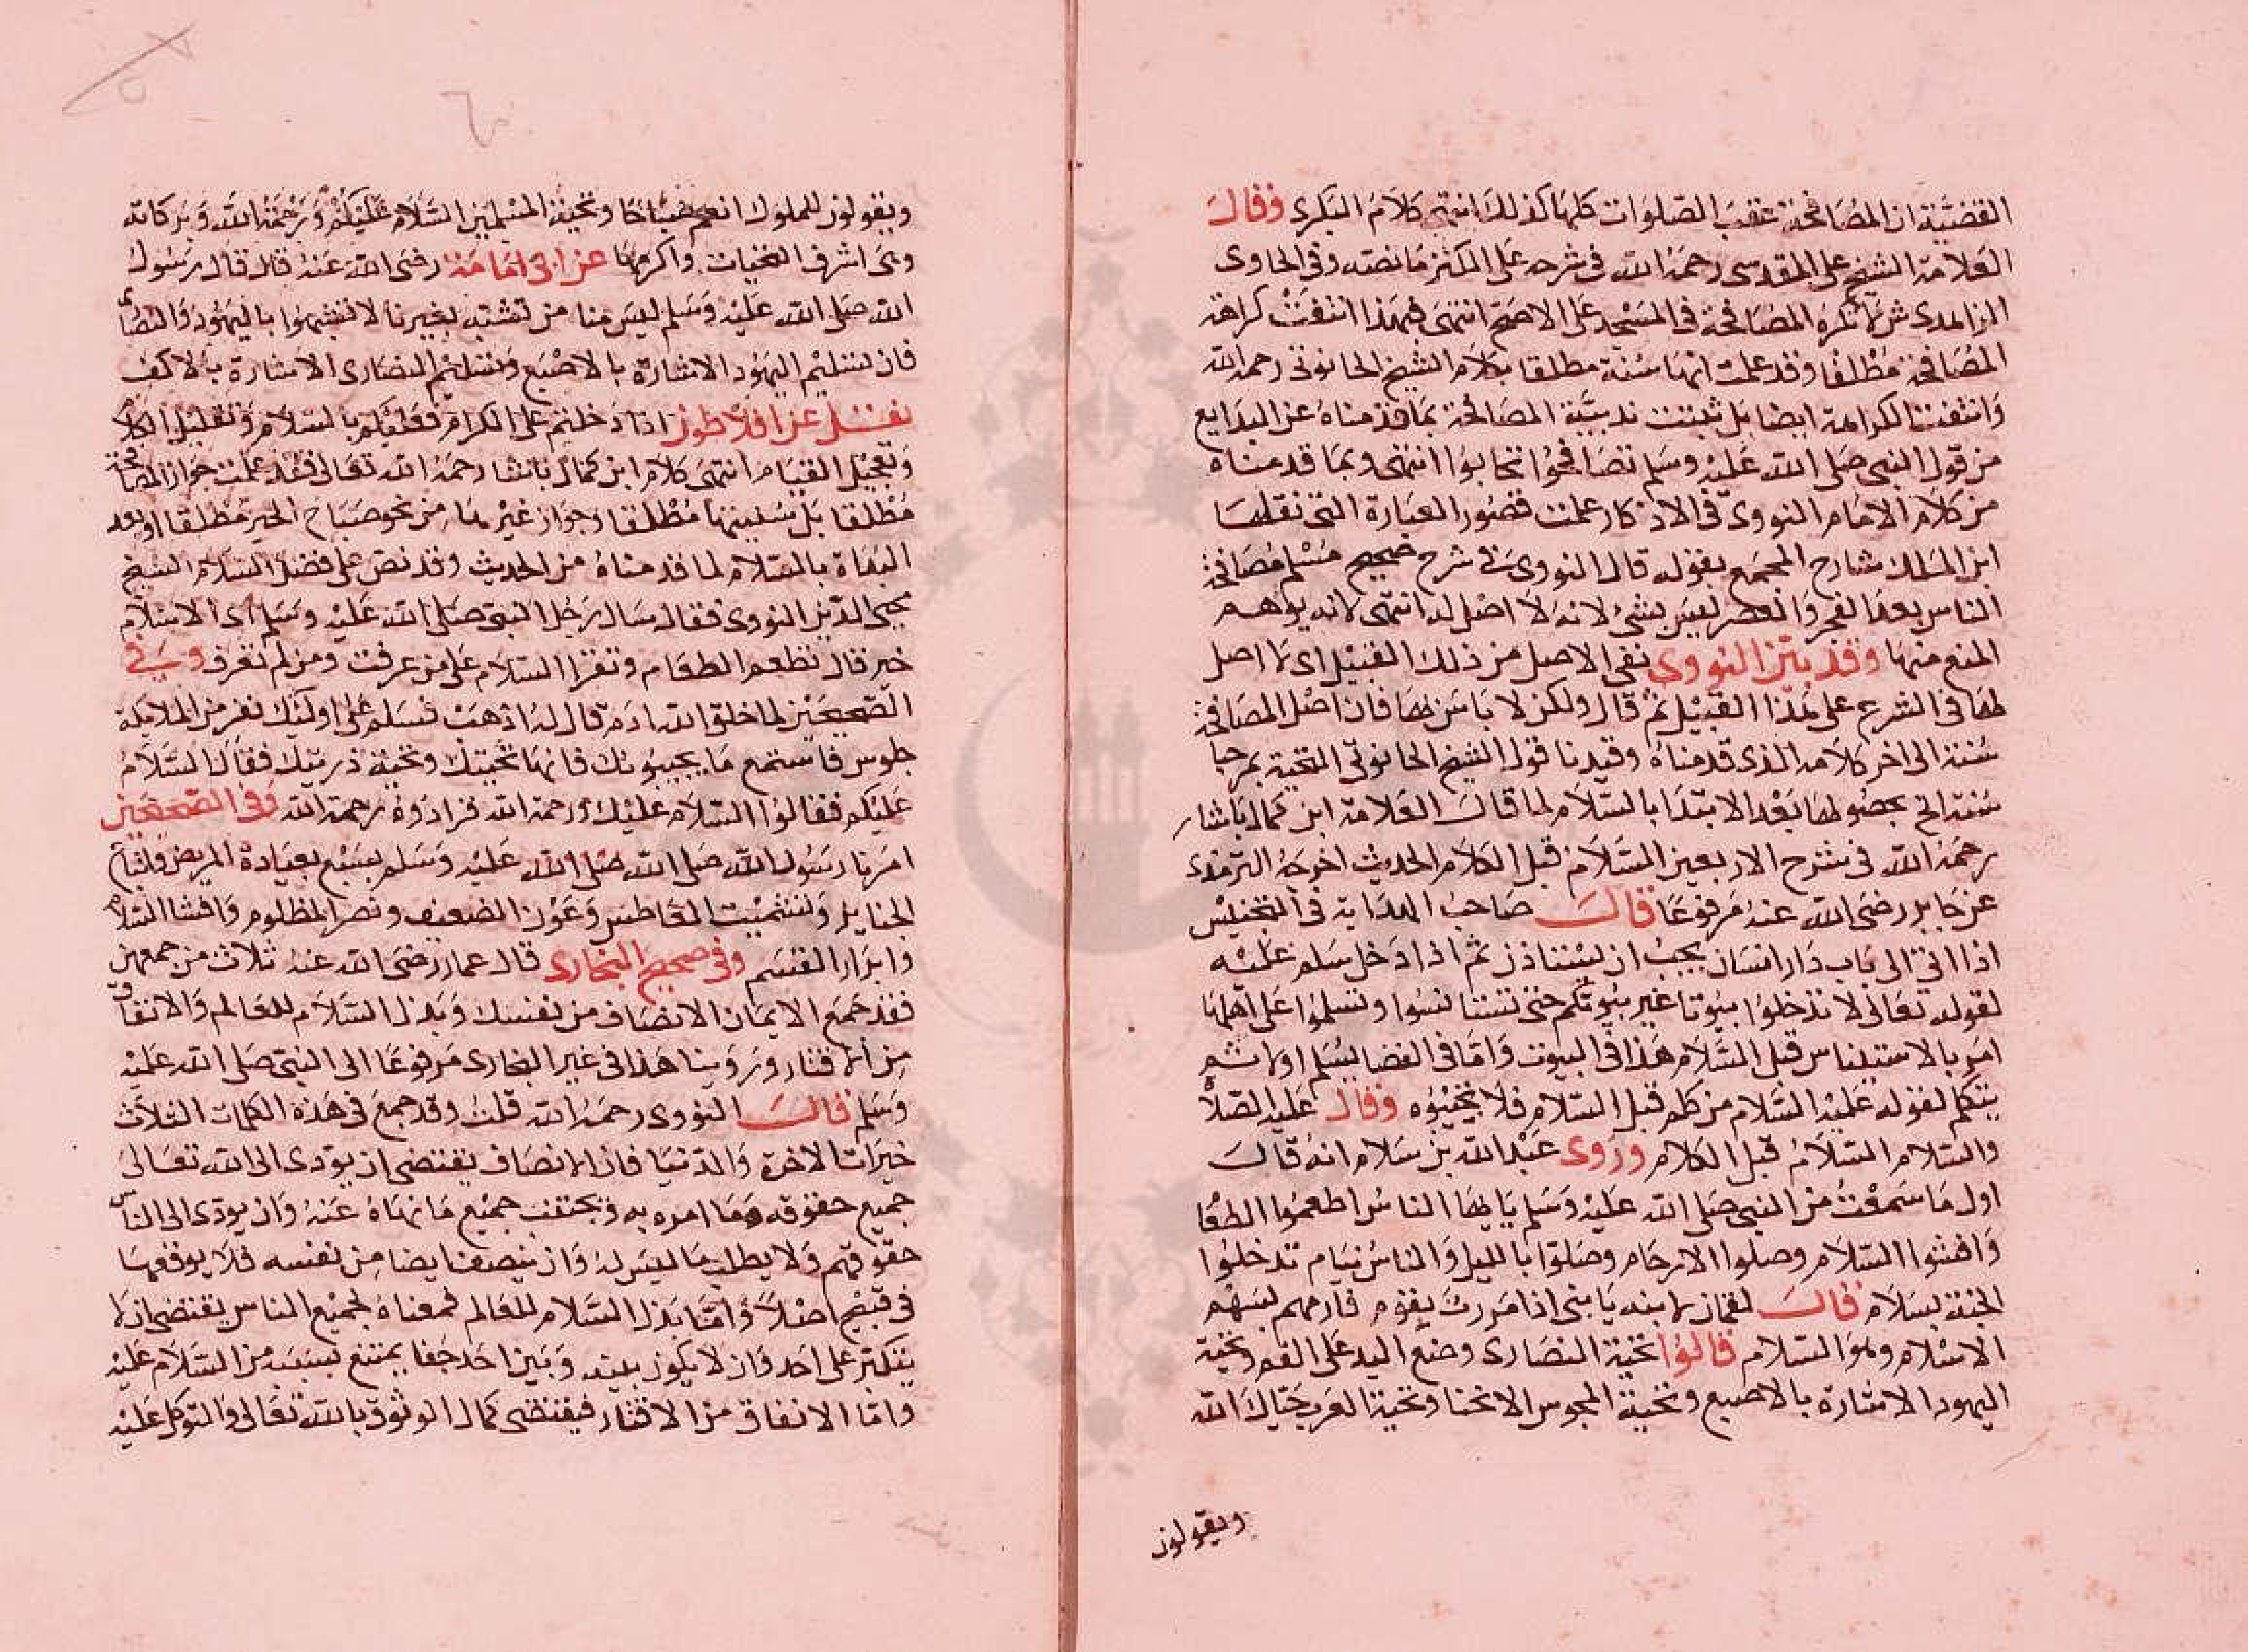 القضية ان المصافحة عقب الصلوات كلها كذلك انتهى كلام البكرى وقال
العلامة الشيخ على المقدسى رحمه الله فى شرحه على الكنز ما نصه وفى الحاوى
الزاهدى ثم لا تكره المصافحة فى المسجد على الاصح انتهى فبهذا انتفت كراهة
المصافحة مطلقا وقد علمت انها سنة مطلقا بكلام الشيخ الحانوتى رحمه الله
وانتفت الكراهة ايضا بل ثبتت ندبية المصافحة بما قدمناه عن البدايع
من قول النبى صلى الله عليه وسلم تصافحوا تحابوا انتهى وبما قدمناه
من كلام الامام النووى فى الاذكار علمت قصور العبارة التى نقلها
ابن الملك شارح المجمع بقوله قال النووى فى شرح صحيح مسلم مصافحة
الناس بعد الفجر والعصر ليس بشئ لانه لا اصل له انتهى لانه يوهم
المنع منها وقد بين النووى نفى الاصل من ذلك القبيل اى لا اصل
لها فى الشرع على هذا القبيل ثم قال ولكن لا باس بها فان اصل المصافحة
سنة الى اخر كلامه الذى قدمناه وقيدنا قول الشيخ الحانوتى التحية بمرحبا
سنة الخ بحصولها بعد الابتدا بالسلام لما قال العلامة ابن كمال باشا
رحمه الله فى شرح الاربعين السلام قبل الكلام الحديث اخرجه الترمذى
عن جابر رضى الله عنه مرفوعا قال صاحب الهداية فى التجنيس
اذا اتى الى باب دار انسان يجب ان يستاذن ثم اذا دخل سلم عليه
لقوله تعالى لا تدخلوا بيوتا غير بيوتكم حتى تستانسوا وتسلموا على اهلها
امر بالاستيناس قبل السلام هذا فى البيوت واما فى الفضا يسلم اولا ثم
يتكلم لقوله عليه السلام من كلم قبل السلام فلا تجيبوه وقال عليه الصلاة
والسلام السلام قبل الكلام وروى عبد الله بن سلام انه قال
اول ما سمعت من النبى صلى الله عليه وسلم يا ايها الناس اطعموا الطعا
وافشوا السلام وصلوا الارحام وصلوا بالليل والناس نيام تدخلوا
الجنة بسلام قال لقمان لابنه يا بنى اذا مررت بقوم فارمهم بسهم
الاسلام وهو السلام قالوا تحية النصارى وضع اليد على الفم وتحية
اليهود الاشارة بالاصبع وتحية المجوس الانحنا وتحية العرب حياك الله
ويقولون
ويقولون للملوك انعم صباحا وتحية المسلمين السلام عليكم ورحمة الله وبركاته
وهى اشرف التحيات واكرمها عن ابى امامة رضى الله عنه قال قال رسول
الله صلى الله عليه وسلم ليس منا من تشبه بغيرنا لا تشبهوا باليهود والنصارى
فان تسليم اليهود الاشارة بالاصبع وتسليم النصارى الاشارة بالاكف
نقل عن افلاطون اذا دخلتم على الكرام فعليكم بالسلام وتقليل الكلام
وتعجيل القيام انتهى كلام ابن كمال باشا رحمه الله تعالى فقد علمت جواز المصافحة
مطلقا بل سنيتها مطلقا وجواز غيرها من نحو صباح الخير مطلقا او بعد
البداة بالسلام لما قدمناه من الحديث وقد نص على فضل السلام الشيخ
يحيى الدين النووى فقال سال رجل النبى صلى الله عليه وسلم اى الاسلام
خير قال تطعم الطعام وتقرا السلام على من عرفت ومن لم تعرف وفى
الصحيحين لما خلق الله ادم قال له اذهب فسلم على اولئك نفر من الملايكة
جلوس فاستمع ما يجيبونك فانها تحيتك وتحية ذريتك فقال السلام
عليكم فقالوا السلام عليك ورحمة الله فزادوه رحمة الله وفى الصحيحين
امرنا رسول الله صلى الله صلى الله عليه وسلم بسبع بعيادة المريض واتباع
الجنايز وتشميت العاطس وعون الضعيف ونصر المظلوم وافشا السلام
وابرار القسم وفى صحيح البخارى قال عمار رضى الله عنه ثلاث من جمعهن
فقد جمع الايمان الانصاف من نفسك وبذل السلام للعالم والانفاق
من الاقتار وروينا هذا فى غير البخارى مرفوعا الى النبى صلى الله عليه
وسلم قال النووى رحمه الله قلت وقد جمع فى هذه الكلمات الثلاث
خيرات الاخرة والدنيا فان الانصاف يقتضى ان يودى الى الله تعالى
جميع حقوقه وما امره به ويجتنب جميع ما نهاه عنه وان يودى الى الناس
حقوقهم ولا يطلب ما ليس له وان ينصف ايضا من نفسه فلا يوقعها
فى قبيح اصلا واما بذل السلام للعالم فمعناه لجميع الناس يقتضى ان لا
يتكبر على احد وان لا يكون بينه وبين احد جفا يمتنع بسببه من السلام عليه
واما الانفاق من الاقتار فيقتضى كمال الوثوق بالله تعالى والتوكل عليه